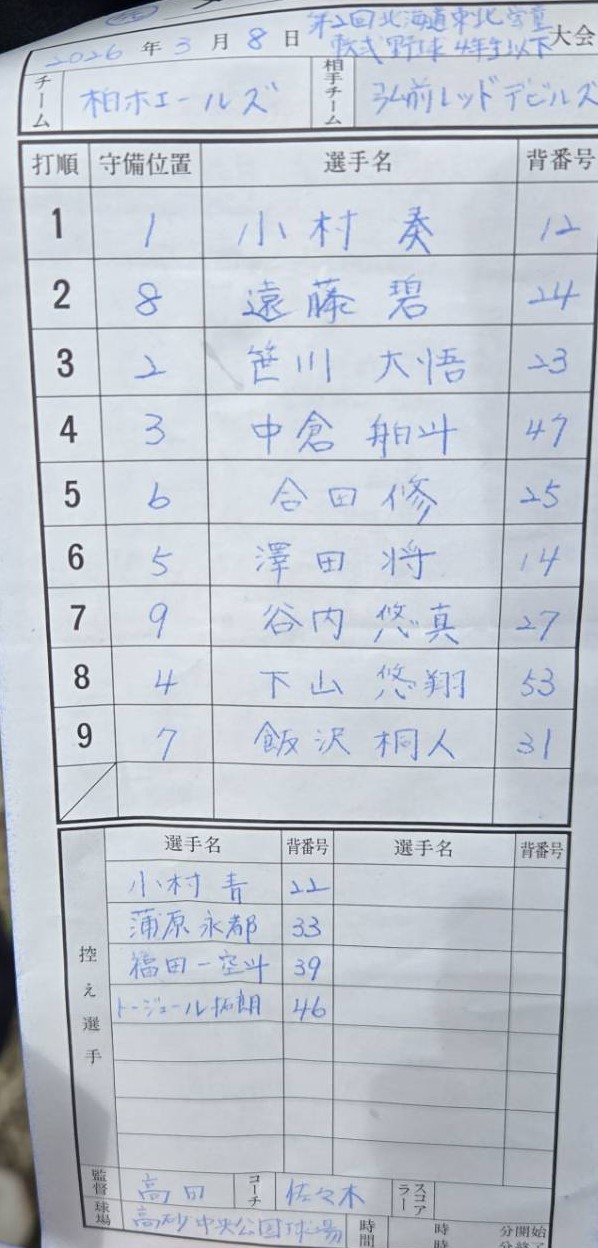 2026 年 3 月 8 日 第2回北海道東北学童軟式野球4年生以下大会
チーム 柏ホエールズ 相手チーム 弘前レッドデビルズ
打順 守備位置 選手名 背番号
1 1 小村 奏 12
2 8 遠藤 碧 24
3 2 笹川 大悟 23
4 3 中倉 舶斗 47
5 6 合田 修 25
6 5 澤田 将 14
7 9 谷内 悠真 27
8 4 下山 悠翔 53
9 7 飯沢 桐人 31
選手名 背番号 選手名 背番号
控え選手
小村 青 22
蒲原 永都 33
福田 一空斗 39
トージョール拓朗 46
監督 高田 コーチ 佐々木 スコアラー
球場 高砂中央公園球場 時間 時 分開始
時 分終了